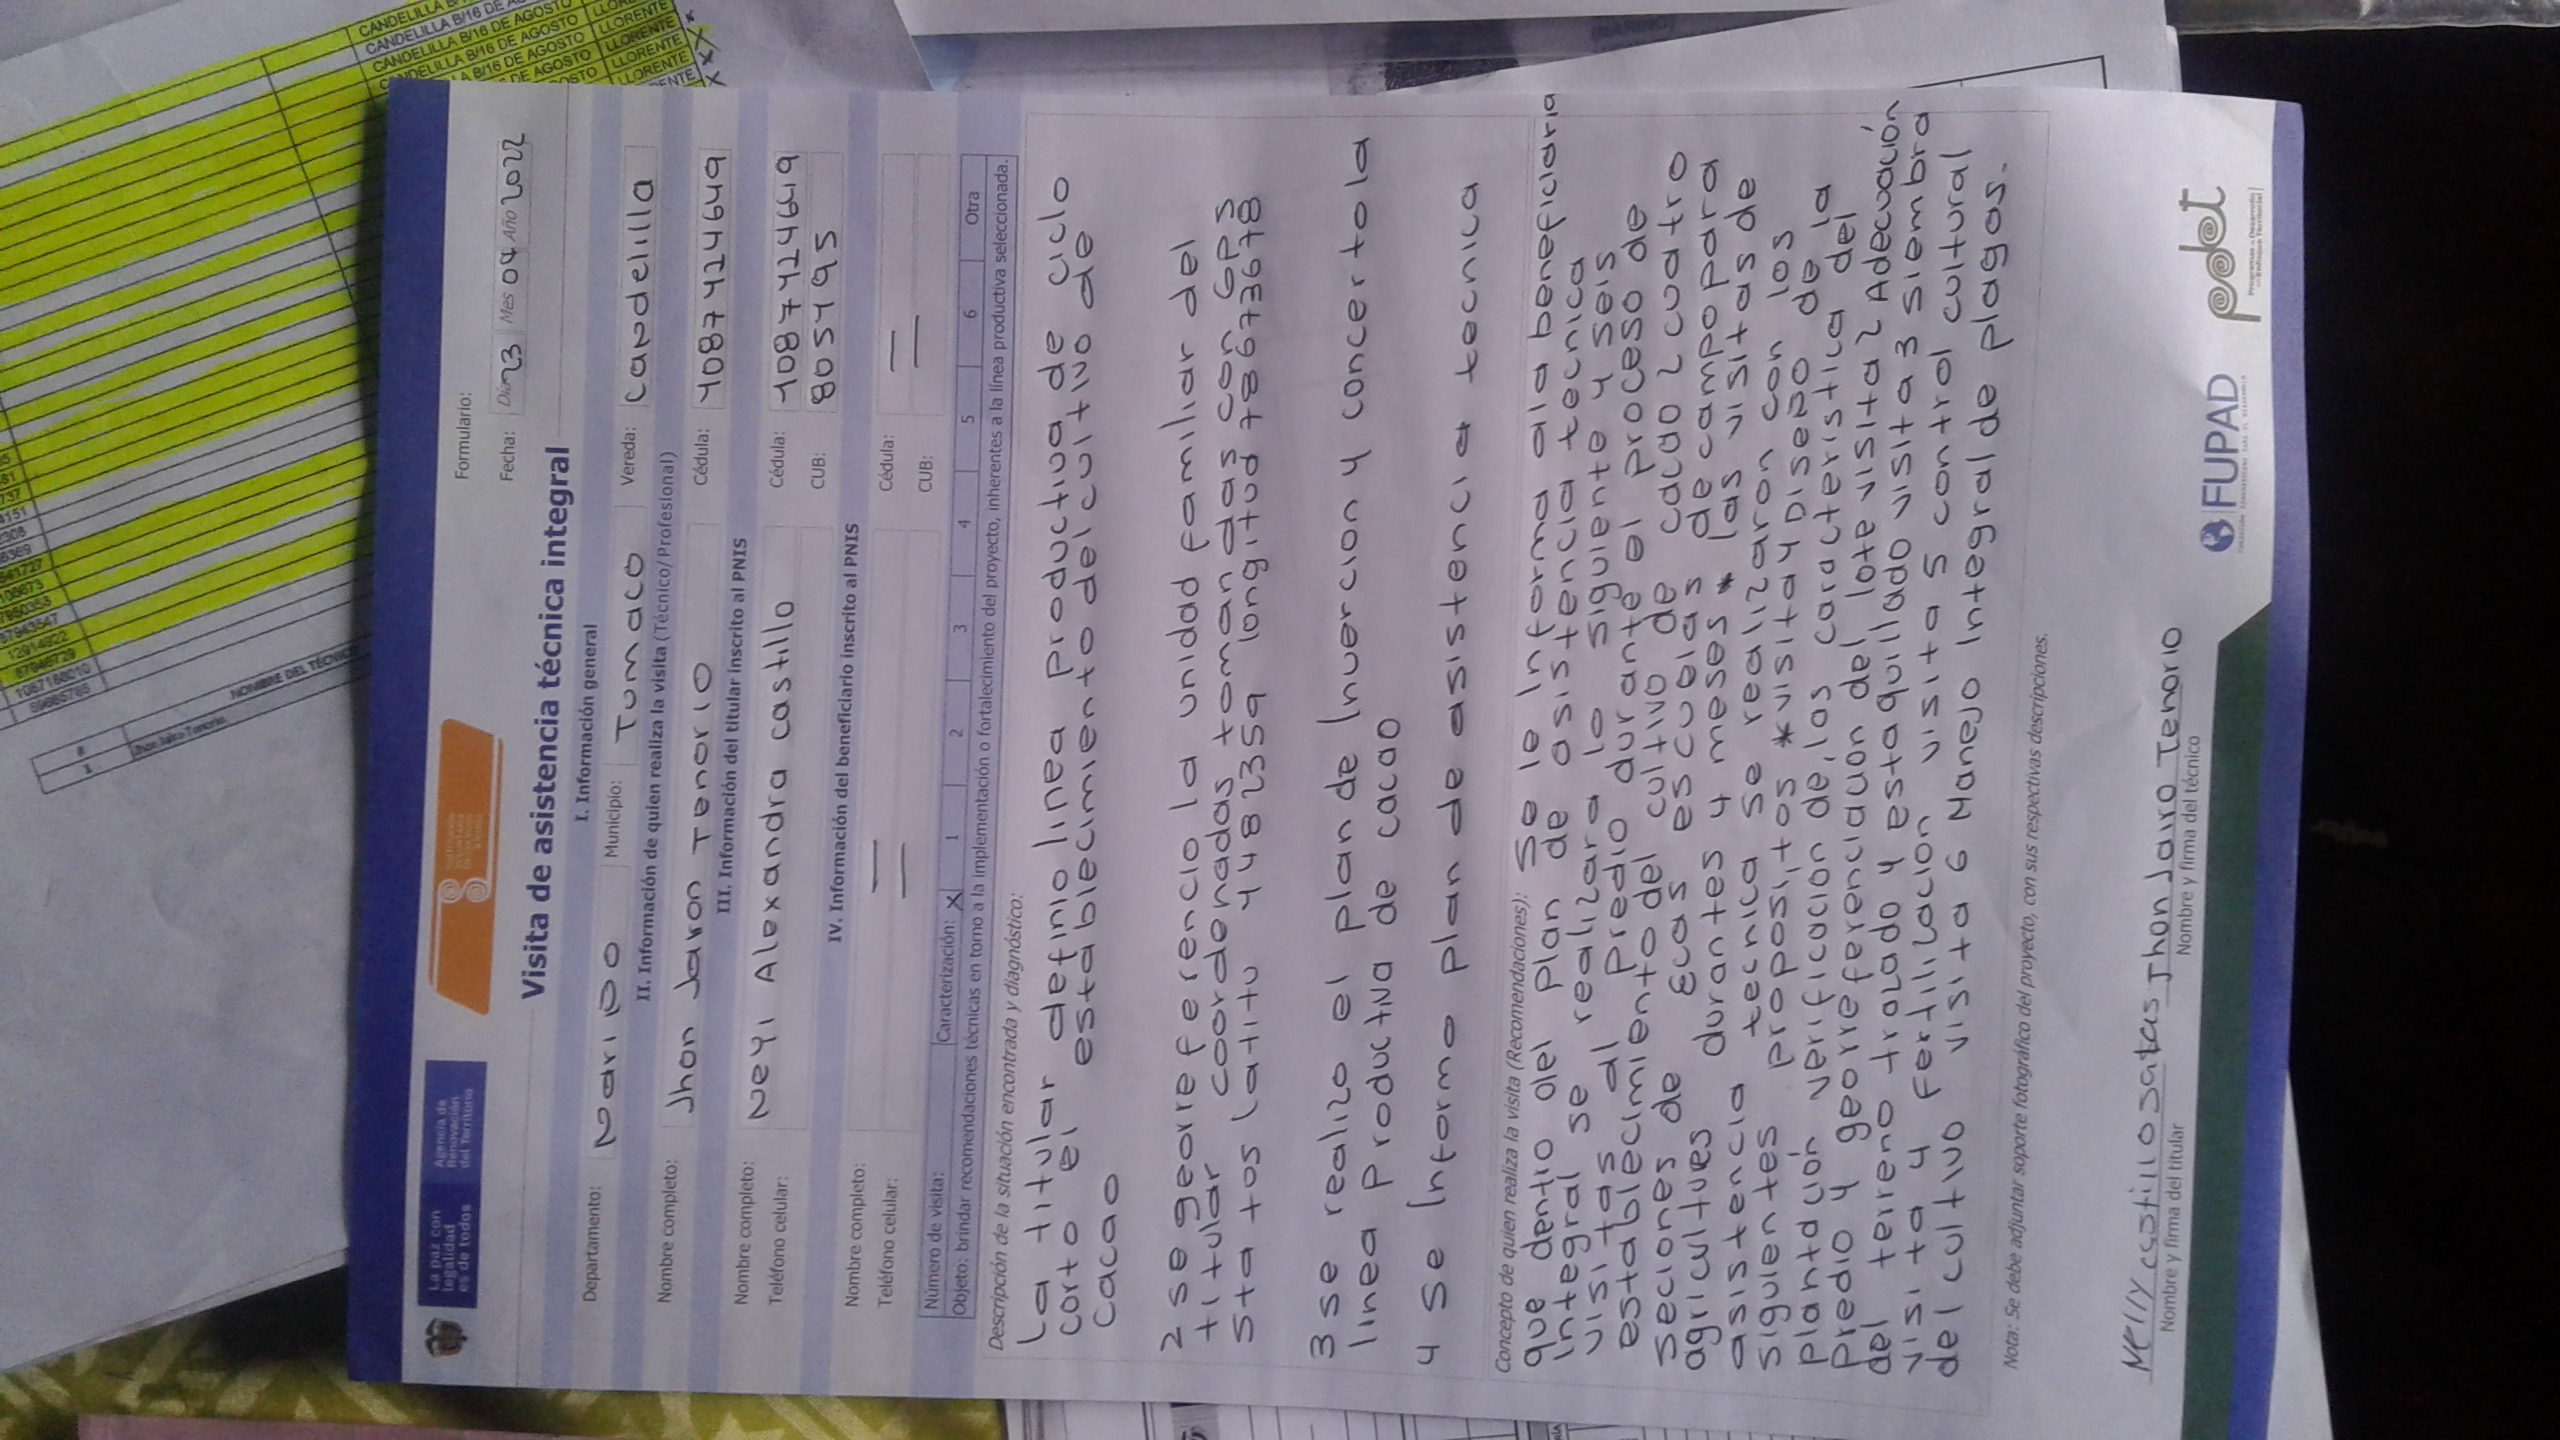 La paz con
legalidad
es de todos
Agencia de
Renovación
del Territorio
Formulario:
Fecha: Día 23 Mes 04 Año 2022
Visita de asistencia técnica integral
I. Información general
Departamento: Nariño Municipio: Tumaco Vereda: Candelilla
II. Información de quien realiza la visita (Técnico/Profesional)
Nombre completo: Jhon Jaron Tenorio Cédula: 1087424649
III. Información del titular inscrito al PNIS
Nombre completo: Neyi Alexandra castillo Cédula: 1087424649
Teléfono celular: CUB: 805495
IV. Información del beneficiario inscrito al PNIS
Nombre completo: — Cédula: —
Teléfono celular: — CUB: —
Número de visita: Caracterización: X 1 2 3 4 5 6 Otra
Objeto: brindar recomendaciones técnicas en torno a la implementación o fortalecimiento del proyecto, inherentes a la línea productiva seleccionada.
Descripción de la situación encontrada y diagnóstico:
La titular definio linea productiva de ciclo
corto el establecimiento del cultivo de
cacao
2 se georreferencio la unidad familiar del
titular coordenadas tomandas con GPS
Statos Latitu 4482359 longitud 78673678
3 se realizo el plan de Inuercion y concerto la
linea productiva de cacao
4 se Informo plan de asistencia tecnica
Concepto de quien realiza la visita (Recomendaciones): Se le Informa ala beneficiaria
que dentro del plan de asistencia tecnica
Integral se realizara lo siguiente y seis
visitas al predio durante el proceso de
establecimiento del cultivo de cacao 2 cuatro
seciones de Ecas escuelas de campo para
agricultures durantes 4 meses * las visitas de
asistencia tecnica se realizaron con los
siguientes proposi,tos * visita 1 Diseño de la
plantacion verificacion de,las caracteristica del
predio y georreferenciacion del lote visita 2 Adecuación
del terreno trazado y estaquillado visita 3 siembra
visita 4 Fertilizacion visita 5 control cultural
del cultivo visita 6 Manejo Integral de plagas.
Nota: Se debe adjuntar soporte fotográfico del proyecto, con sus respectivas descripciones.
Nelly castillo satus Jhon Jairo Tenorio
Nombre y firma del titular Nombre y firma del técnico
FUPAD
pdet
Programas de Desarrollo
con Enfoque Territorial
CANDELILLA B/16 DE AGOSTO LLORENTE
CANDELILLA B/16 DE AGOSTO LLORENTE
NOMBRE DEL TÉCNICO
Jhon Jairo Tenorio
1087188010
59685765